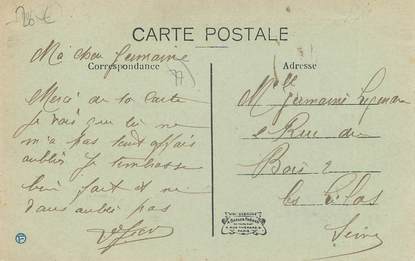 28 €
CARTE POSTALE
Correspondance
Adresse
77
Ma chère Germaine
Merci de ta carte
je vois que tu ne
m'a pas tout à fait
oublié Je t'embrasse
bien fort et ne
t'oublie pas
Mlle Germaine
2 Rue du
Bois 2
les Lilas
Seine
PARIS